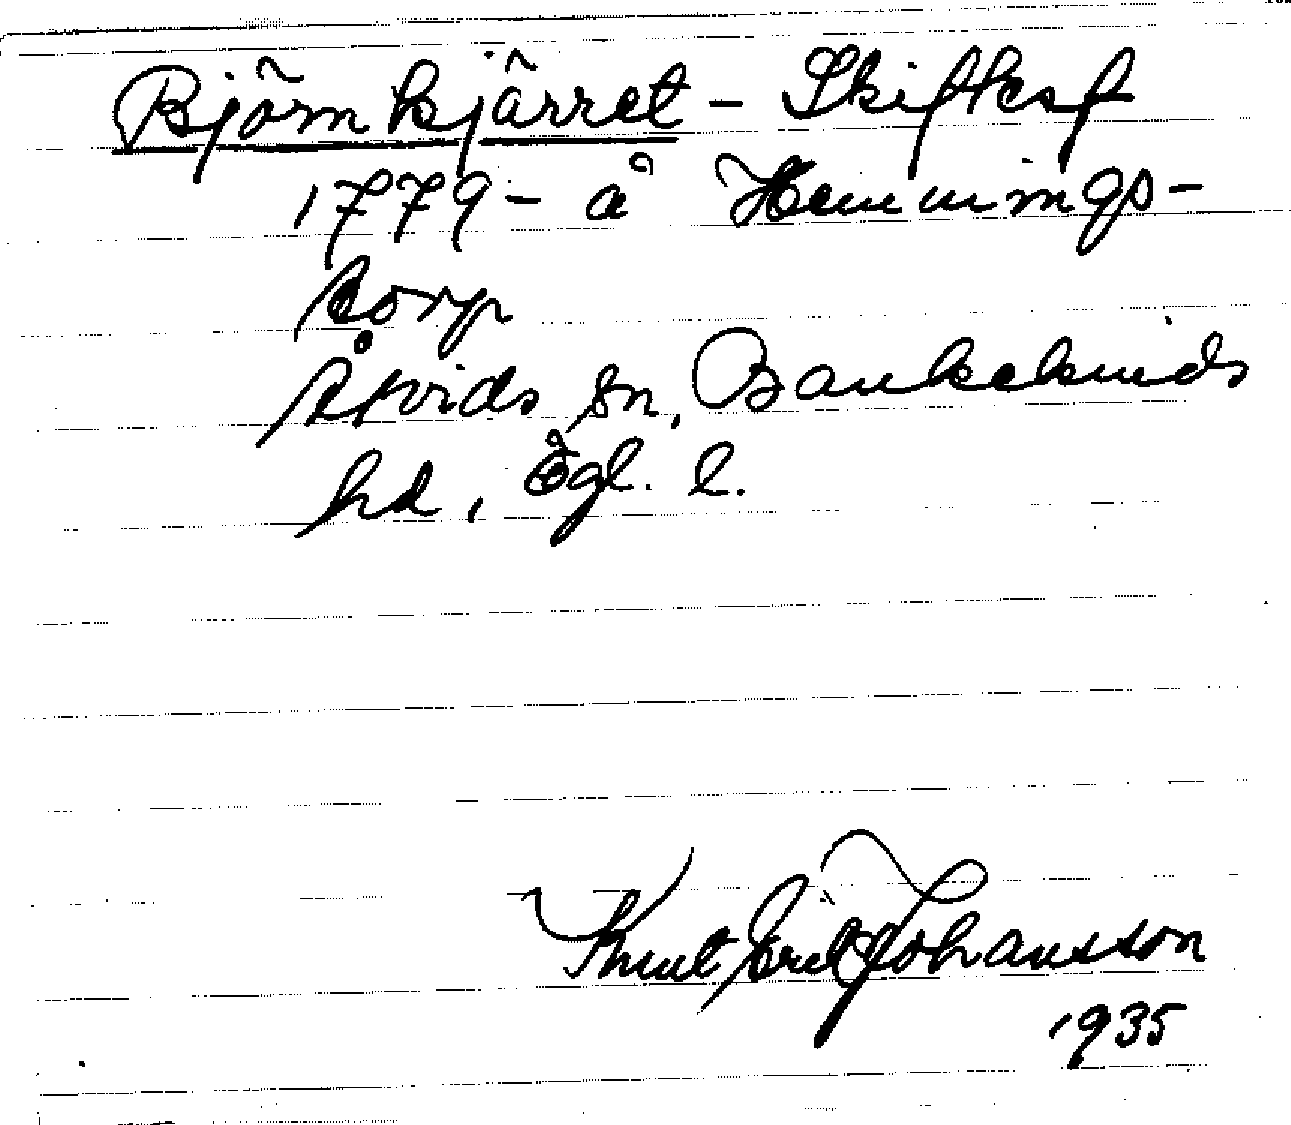 Björnkjärret - Skifteskf
1779 - å Hemmings-
torp
Åtvids sn, Bankekinds
hd, Ögl. l.
Knut Erik Johansson
1935